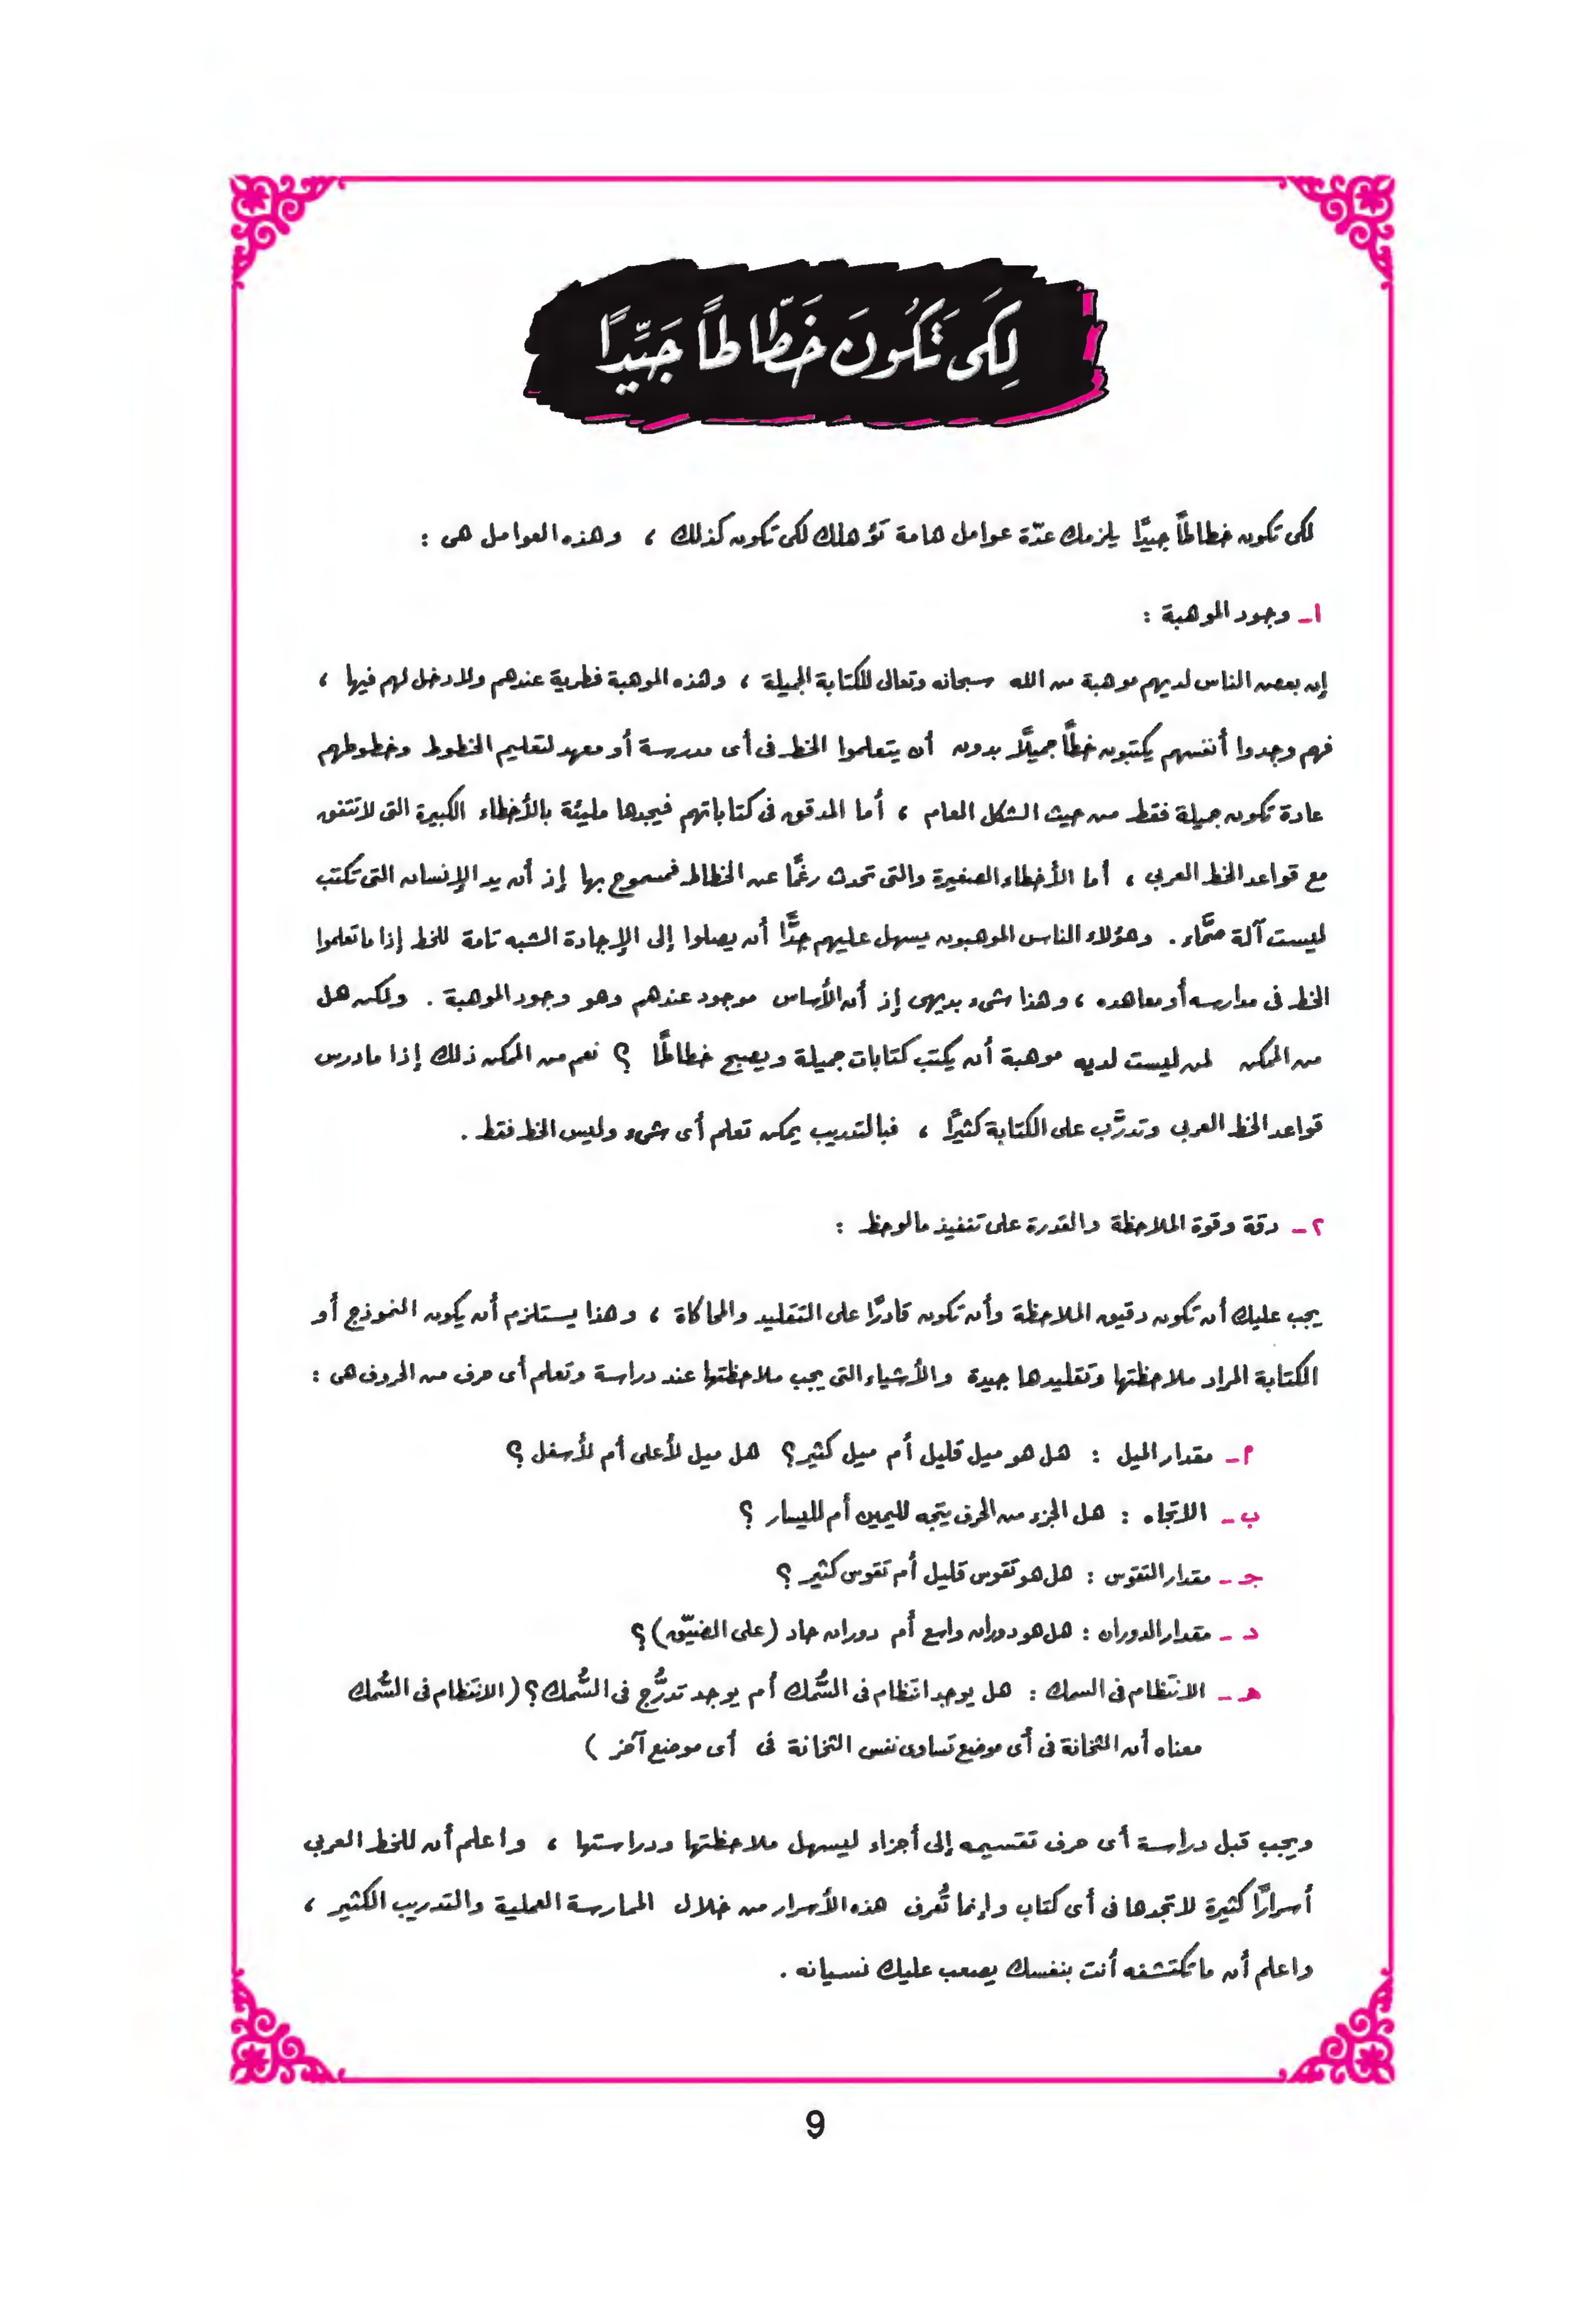 لِكَى تَكُونَ خَطَّاطاً جَيِّدًا
لكى تكون خطاطاً جيدًا يلزمك عدّة عوامل هامة تؤهلك لكى تكون كذلك ، وهذه العوامل هى :
١ـ وجود الموهبة :
إن بعض الناس لديهم موهبة من الله سبحانه وتعالى للكتابة الجميلة ، وهذه الموهبة فطرية عندهم ولا دخل لهم فيها ،
فهم وجدوا أنفسهم يكتبون خطًّا جميلًا بدون أن يتعلموا الخط فى أى مدرسة أو معهد لتعليم الخطوط وخطوطهم
عادة تكون جميلة فقط من حيث الشكل العام ، أما المدقق فى كتاباتهم فيجدها مليئة بالأخطاء الكبيرة التى لا تتفق
مع قواعد الخط العربى ، أما الأخطاء الصغيرة والتى تحدث رغمًا عن الخطاط فمسموح بها إذ أن يد الإنسان التى تكتب
ليست آلة صمَّاء . وهؤلاء الناس الموهبون يسهل عليهم جدًّا أن يصلوا إلى الإجادة الشبه تامة للخط إذا ما تعلموا
الخط فى مدارسه أو معاهده ، وهذا شىء بديهى إذ أن الأساس موجود عندهم وهو وجود الموهبة . ولكن هل
من الممكن لمن ليست لديه موهبة أن يكتب كتابات جميلة ويصبح خطاطًا ؟ نعم من الممكن ذلك إذا ما درس
قواعد الخط العربى وتدرَّب على الكتابة كثيرًا ، فبالتدريب يمكن تعلم أى شىء وليس الخط فقط .
٢ـ دقة وقوة الملاحظة والقدرة على تنفيذ ما لوحظ :
يجب عليك أن تكون دقيق الملاحظة وأن تكون قادرًا على التقليد والمحاكاة ، وهذا يستلزم أن يكون النموذج أو
الكتابة المراد ملاحظتها وتقليدها جيدة والأشياء التى يجب ملاحظتها عند دراسة وتعلم أى حرف من الحروف هى :
أ ـ مقدار الميل : هل هو ميل قليل أم ميل كثير؟ هل ميل لأعلى أم لأسفل ؟
ب ـ الاتجاه : هل الجزء من الحرف يتجه لليمين أم لليسار ؟
جـ ـ مقدار التقوس : هل هو تقوس قليل أم تقوس كثير ؟
د ـ مقدار الدوران : هل هو دوران واسع أم دوران حاد (على الضيّق) ؟
هـ ـ الانتظام فى السمك : هل يوجد انتظام فى السُّمك أم يوجد تدرُّج فى السُّمك ؟ ( الانتظام فى السُّمك
معناه أن الثخانة فى أى موضع تساوى نفس الثخانة فى أى موضع آخر )
ويجب قبل دراسة أى حرف تقسيمه إلى أجزاء ليسهل ملاحظتها ودراستها ، واعلم أن للخط العربى
أسرارًا كثيرة لا تجدها فى أى كتاب وإنما تُعرف هذه الأسرار من خلال الممارسة العملية والتدريب الكثير ،
واعلم أن ما تكتشفه أنت بنفسك يصعب عليك نسيانه .
9